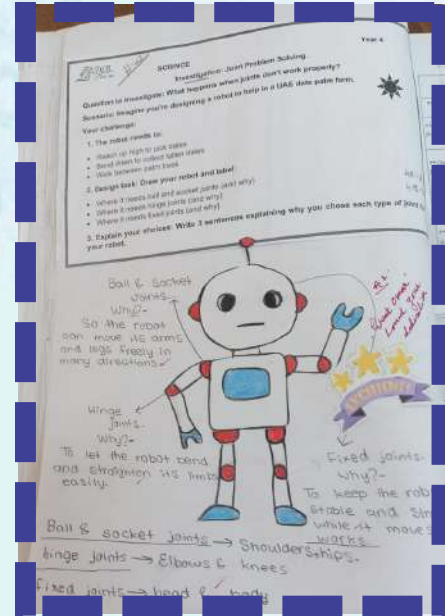 Year 4
SCIENCE
Investigation: Joint Problem Solving
Question to Investigate: What happens when joints don't work properly?
Scenario: Imagine you're designing a robot to help in a UAE date palm farm.
Your challenge:
1. The robot needs to:
• Reach up high to pick dates
• Bend down to collect fallen dates
• Walk between palm trees
2. Design task: Draw your robot and label:
• Where it needs ball and socket joints (and why)
• Where it needs hinge joints (and why)
• Where it needs fixed joints (and why)
3. Explain your choices: Write 3 sentences explaining why you chose each type of joint
your robot.
Ball & Socket
Joints.
Why?-
So the robot
can move its arms
and legs freely in
many directions.
Hinge
joints.
Why?-
To let the robot bend
and straighten its limbs
easily.
EXCELLENT
Fixed joints.
Why?-
To keep the rob
stable and
while it moves
works
Ball & socket joints → Shoulders & hips.
hinge joints → Elbows & knees
fixed joints → head & body